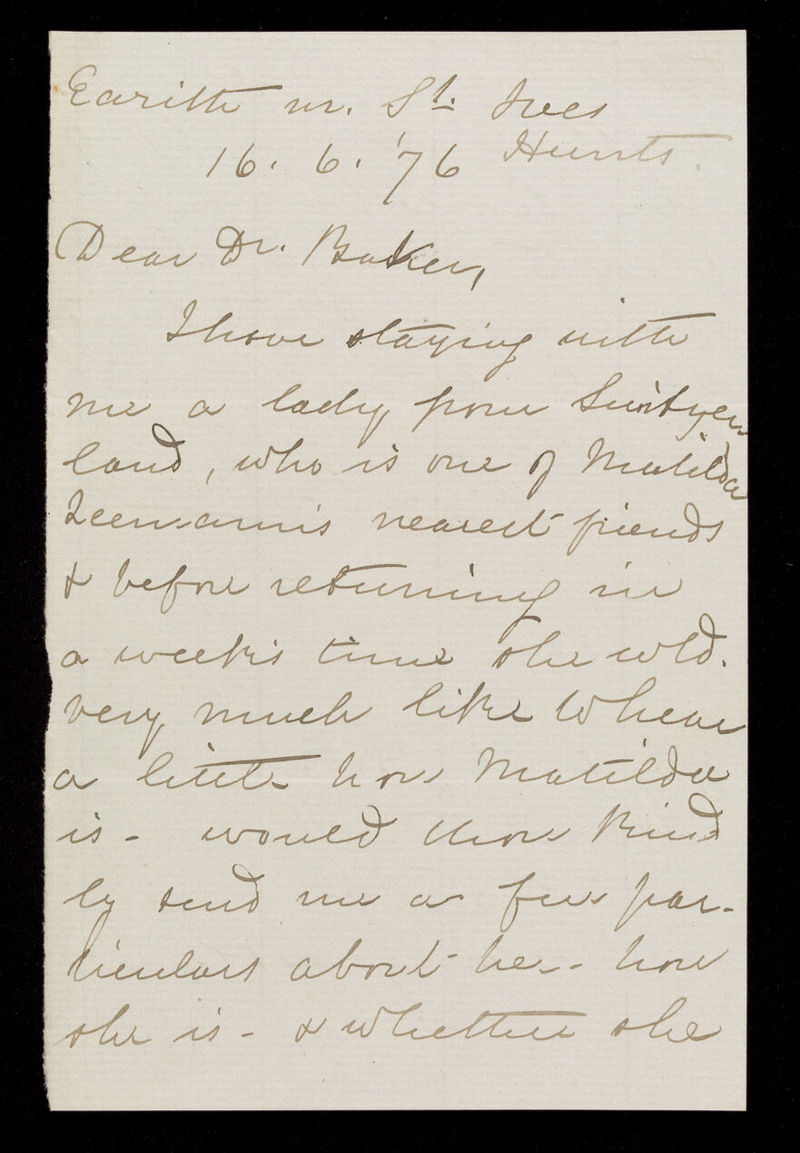 Earith nr. St. Ives
Hunts.
16. 6. '76
Dear Dr. Baker,
I have staying with
me a lady from Switzer-
land, who is one of Matilda
nearest friends
& before returning in
a week's time she wld.
very much like to hear
a little how Matilda
is - would thou kind
ly send me a few par-
ticulars about her - how
she is - & whether she